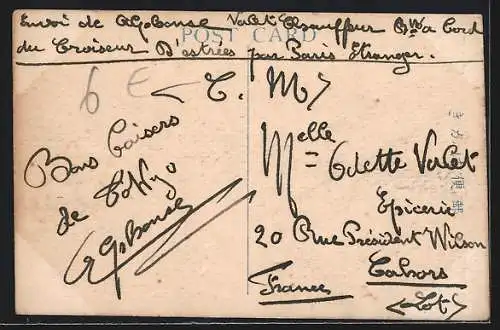 Envoi de Alphonse Valet Chauffeur Bvté a bord
POST CARD
du Croiseur D'estrées par Paris Etranger.
6 E
Bons baisers
de Tokyo
Alphonse
Melle
Odette Valet
Epicerie
20 Rue Président Wilson
Cahors
(Lot)
France